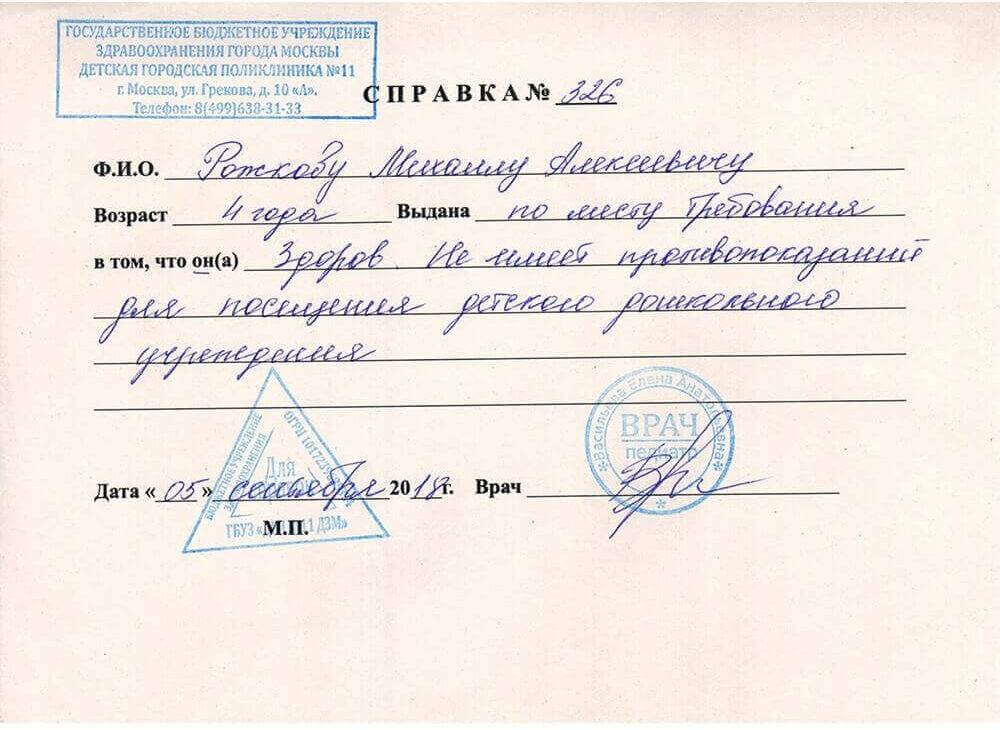 ГОСУДАРСТВЕННОЕ БЮДЖЕТНОЕ УЧРЕЖДЕНИЕ
ЗДРАВООХРАНЕНИЯ ГОРОДА МОСКВЫ
ДЕТСКАЯ ГОРОДСКАЯ ПОЛИКЛИНИКА №11
г. Москва, ул. Грекова, д. 10 «А».
Телефон: 8(499)638-31-33
СПРАВКА № 326
Ф.И.О. Рожкову Михаилу Алексеевичу
Возраст 4 года Выдана по месту требования
в том, что он(а) Здоров. Не имеет противопоказаний
для посещения детского дошкольного
учреждения
Васильева Елена Анатольевна
ВРАЧ
педиатр
БЮДЖЕТНОЕ УЧРЕЖДЕНИЕ
ЗДРАВООХРАНЕНИЯ
ОГРН
Для
Дата «05» сентября 2018г. Врач
М.П.
ГБУЗ « 11 ДЗМ»